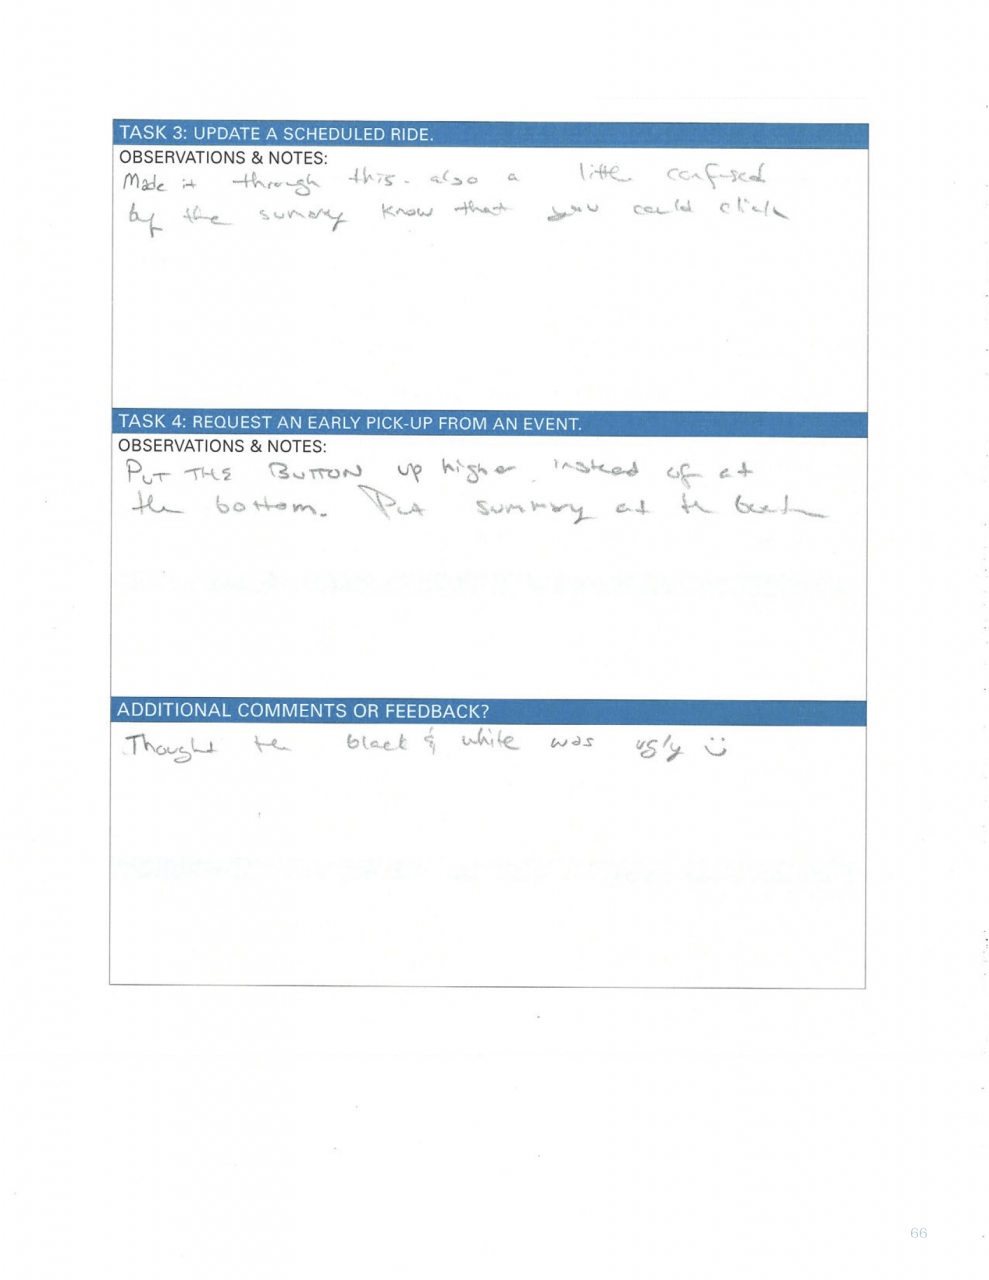 TASK 3: UPDATE A SCHEDULED RIDE.
OBSERVATIONS & NOTES:
Made it through this. also a little confused
by the sumary know that you could click
TASK 4: REQUEST AN EARLY PICK-UP FROM AN EVENT.
OBSERVATIONS & NOTES:
PUT THE BUTTON up higher instead of at
the bottom. Put summary at the
ADDITIONAL COMMENTS OR FEEDBACK?
Thought the black & white was ugly
66